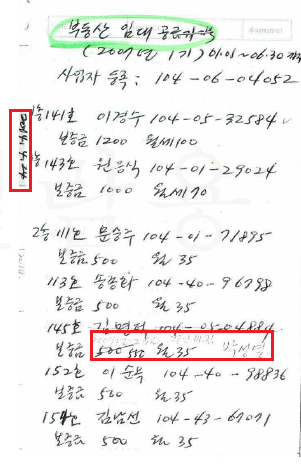 부동산 임대 공급가액
(2007년 1기) 01.01~06.30 까지
사업자 등록: 104-06-04052
141호 이경수 104-05-32584
보증금 1200 월세 100
143호 원응식 104-01-29024
보증금 1000 월세 70
2층 111호 문승수 104-01-71895
보증금 500 월 35
113호 송종화 104-40-96798
보증금 500 월 35
145호 김면택 104-05-04884
보증금 500 월 35
152호 이순복 104-40-98836
보증금 500 월 35
김남선 104-43-67071
보증금 500 월 35